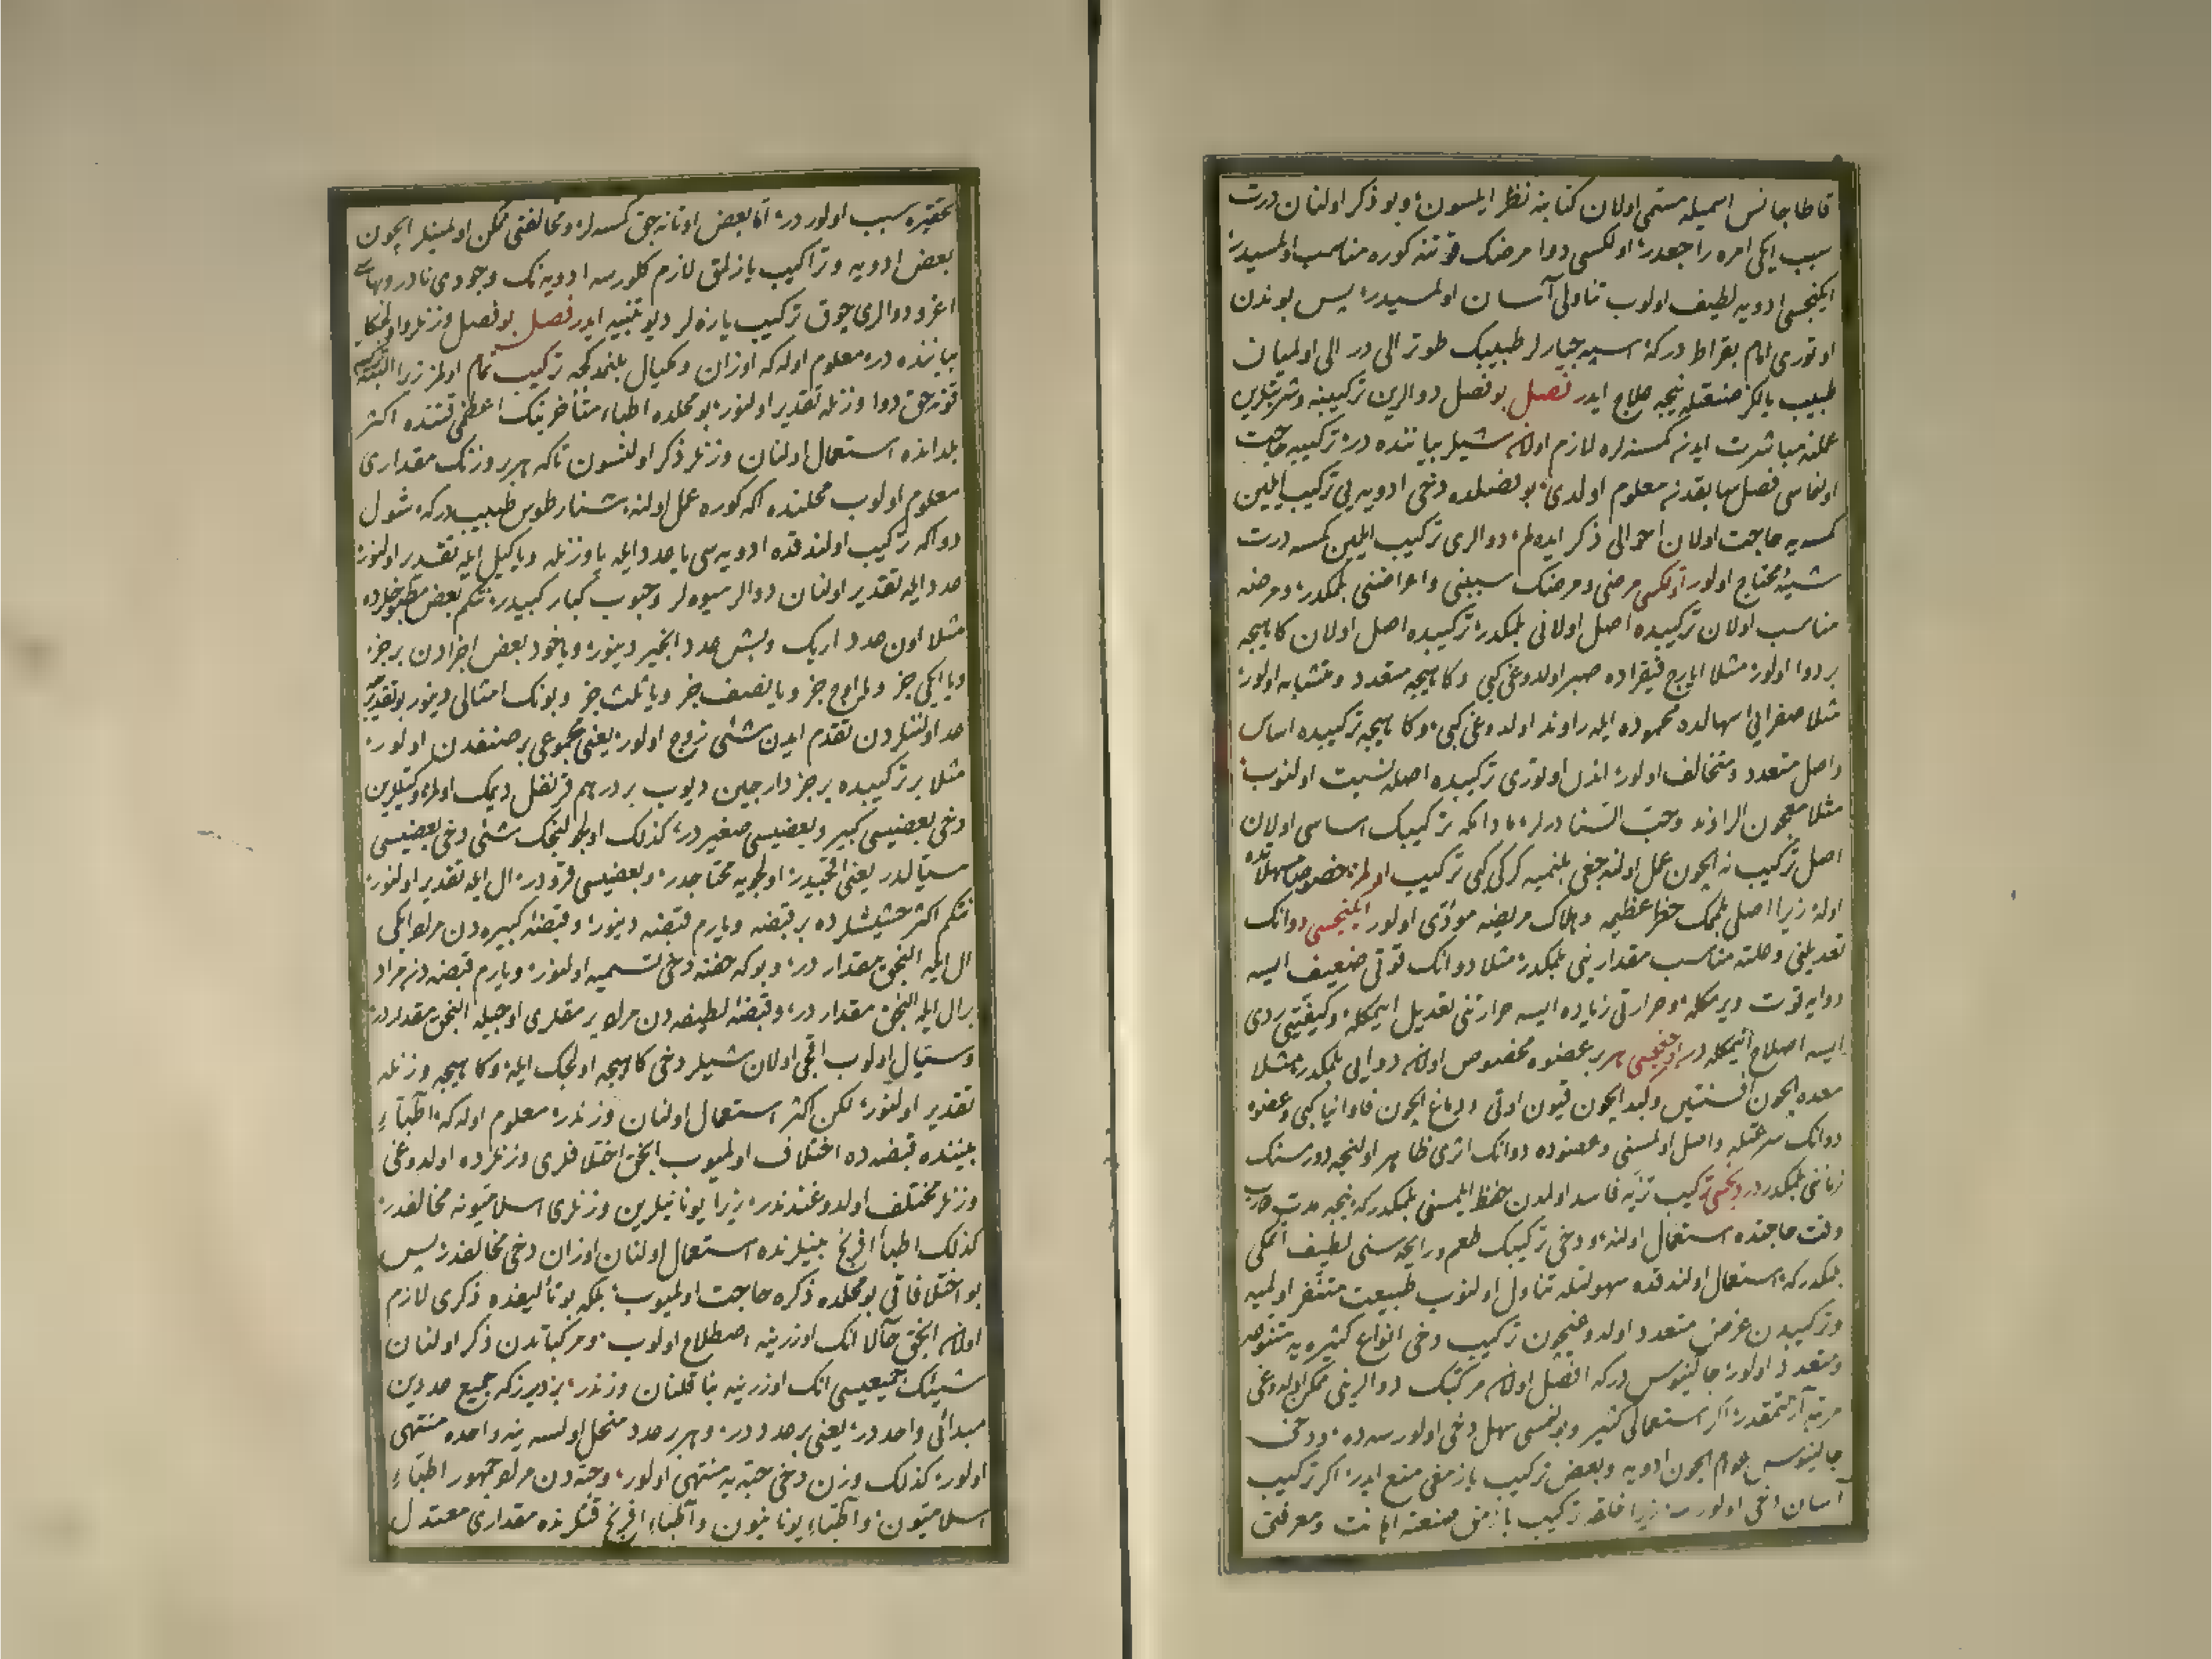 قاطاجانس اسمیله مسمی اولان کتابنه نظر ایلسون وبو ذکر اولنان درت
سبب ایکی امره راجعدر اولکسی دوا مرضک قوتنه کوره مناسب اولمسیدر
ایکنجسی ادویه لطیف اولوب تناولی آسان اولمسیدر پس بوندن
اوتوری امام بقراط درکه اسپه جیارلر طبیبک طوتر الی در الی اولمیان
طبیب یالکز صنعتله نیجه علاج ایدر فصل بو فصل دوالرین ترکیبنه وشربتلرین
عملنه مباشرت ایدن کمسنه لره لازم اولان شیلر بیاننده در ترکیبه حاجت
اولنماسی فصل سابقدن معلوم اولدی بو فصلده دخی ادویه یی ترکیب ایلین
کمسه یه حاجت اولان احوالی ذکر ایده لم دوالری ترکیب ایلین کمسه درت
شیئه محتاج اولور اولکسی مرضی ومرضک سببنی واعراضنی بلمکدر ومرضه
مناسب اولان ترکیبده اصل اولانی بلمکدر ترکیبده اصل اولان کاهیجه
بر دوا اولور مثلا ایارج فیقراده صبر اولدوغی کبی وکاهیجه متعدد ومتشابه اولور
مثلا صفرایی اسهالده محموده ایله راوند اولدوغی کبی وکاهیجه ترکیبده اساس
واصل متعدد ومتخالف اولور اندن اوتوری ترکیبده اصله نسبت اولنوب
مثلا معجون الراوند وحب السنا درلر مادامکه ترکیبک اساسی اولان
اصل ترکیب نه ایچون عمل اولنه جغی بلنمیه کرکی کبی ترکیب اولمز خصوصا مسهلاتده
اوله زیرا اصلی بلمک خطر عظیمه وهلاک مریضه مؤدی اولور ایکنجسی دوانک
تعدیلنی وعلته مناسب مقدارینی بلمکدر مثلا دوانک قوتی ضعیف ایسه
دوایه قوت ویرمکله وحرارتی زیاده ایسه حرارتنی تعدیل ایتمکله وکیفیتی ردی
ایسه اصلاح ایتمکله در اوچنجسی هر بر عضوه مخصوص اولان دوایی بلمکدر مثلا
معده ایچون افسنتین وکبد ایچون قیون اوتی ودماغ ایچون فاوانیا کبی وعضوه
دوانک سرعتله واصل اولمسنی وعضوده دوانک اثری ظاهر اولنجه دورسنک
زماننی بلمکدر دردنجسی ترکیب تیز فاسد اولمدن حفظ ایلمسنی بلمکدر که نیجه مدت
وقت حاجتده استعمال اولنه ودخی ترکیبک طعم ورایحه سنی لطیف ایتمکی
بلمکدر که استعمال اولندقده سهولتله تناول اولنوب طبیعت متنفر اولمیه
وترکیبدن غرض متعدد اولدوغیچون ترکیب دخی انواع کثیره یه متنوع
ومتعدد اولور جالینوس درکه افضل اولان مرکبک دوالرینی ممکن اولدوغی
مرتبه آزلتمقدر اکر استعمالی کثیر وبولنمسی سهل دخی اولورسه ده ودخی
جالینوس عوام ایچون ادویه وبعض ترکیب یازمغی منع ایدر اکر ترکیب
آسان دخی اولورسه زیرا خلقه ترکیب یازمق صنعته اهانت ومعرفتی
تحقیره سبب اولور در اما بعض اوتانه جق کمسه لر ومخالفتی ممکن اولمینلر ایچون
بعض ادویه وتراکیب یازلمق لازم کلورسه ادویه نک وجودی نادر وبهاسی
اغر ودوالری چوق ترکیب یازه لر دیو تنبیه ایدر فصل بو فصل وزنلر واولچکلر
بیاننده در معلوم اوله که اوزان ومکیال بلنمدکجه ترکیب تمام اولمز زیرا البته ترکیبه
قونه جق دوا وزنله تقدیر اولنور بو محلده اطباء متأخرینک اعظمی قتنده اکثر
بلدانده استعمال اولنان وزنلر ذکر اولنسون تاکه هر بر وزنک مقداری
معلوم اولوب محلنده اکه کوره عمل اولنه شنارطوس طبیب درکه شول
دوا که ترکیب اولندقده ادویه سی یا عدد ایله یا وزنله ویا کیل ایله تقدیر اولنور
عدد ایله تقدیر اولنان دوالر میوه لر وحبوب کبار کبیدر نتکم بعض مطبوخلرده
مثلا اون عدد اریک وبش عدد انجیر دینور ویاخود بعض اجزادن بر جزء
ویا ایکی جزء ویا اوچ جزء ویا نصف جزء ویا ثلث جزء وبونک امثالی دینور بو تقدیرجه
عد اولنلردن تقدم ایدن شئی زوج اولور یعنی مجموعی بر صنفدن اولور
مثلا بر ترکیبده بر جزء دارچین دیوب بر درهم قرنفل دیمک اولمز وکیلرین
دخی بعضیسی کبیر وبعضیسی صغیر در کذلک اولچولنجک شئی دخی بعضیسی
سیالدر یعنی اقیجیدر اولچویه محتاجدر وبعضیسی قرو در ال ایله تقدیر اولنور
نتکم اکثر حشیشلرده بر قبضه ویارم قبضه دینور وقبضه کبیره دن مراد ایکی
ال ایله النجق مقدار در وبوکه حفنه دخی تسمیه اولنور ویارم قبضه دن مراد
بر ال ایله النجق مقدار در وقبضه لطیفه دن مراد بر مقلری اوجیله النجق مقدار در
وسیال اولوب اقیجی اولان شیلر دخی کاهیجه اولچک ایله وکاهیجه وزنله
تقدیر اولنور لکن اکثر استعمال اولنان وزندر معلوم اوله که اطباء
بیننده قبضه ده اختلاف اولمیوب انجق اختلافلری وزنلرده اولدوغی
وزنلر مختلف اولدوغندندر زیرا یونانیلرین وزنلری اسلامیونه مخالفدر
کذلک اطباء افرنج بینلرنده استعمال اولنان اوزان دخی مخالفدر پس
بو اختلافاتی بو محلده ذکره حاجت اولمیوب بلکه بو تألیفده ذکری لازم
اولان انجق حالا انک اوزرینه اصطلاح اولوب ومرکباتدن ذکر اولنان
شیئک جمیعیسی انک اوزرینه بنا قلنان وزندر بز دیرزکه جمیع عددین
مبدأی واحد در یعنی بر عدد در وهر بر عدد منحل اولسه ینه واحده منتهی
اولور کذلک وزن دخی حبه یه منتهی اولور وحبه دن مراد جمهور اطباء
اسلامیون واطباء یونانیون واطباء افرنج قتلرنده مقداری معتدل